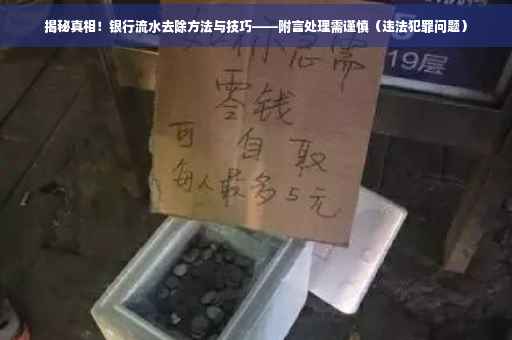 揭秘真相！银行流水去除方法与技巧——附言处理需谨慎（违法犯罪问题）
如你急需
零钱
可自取
每人最多5元
19层